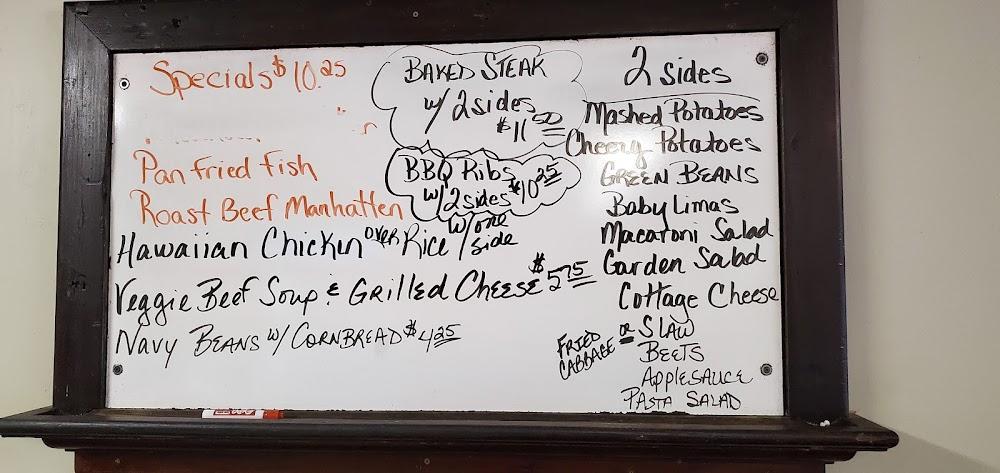 Specials $10.25
Pan Fried Fish
Roast Beef Manhatten
Hawaiian Chicken over Rice w/one side
Veggie Beef Soup & Grilled Cheese $5.75
Navy Beans w/ Cornbread $4.25
BAKED STEAK
w/ 2 sides
$11.50
BBQ Ribs
w/ 2 sides $10.25
2 sides
Mashed Potatoes
Cheesy Potatoes
GREEN BEANS
Baby Limas
Macaroni Salad
Garden Salad
Cottage Cheese
FRIED CABBAGE or SLAW
BEETS
APPLESAUCE
PASTA SALAD